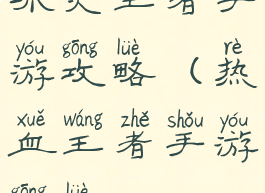 王者手
yóu gōng lüè rè
游攻略（热
xuě wáng zhě shǒu yóu
血王者手游
gōng lüè